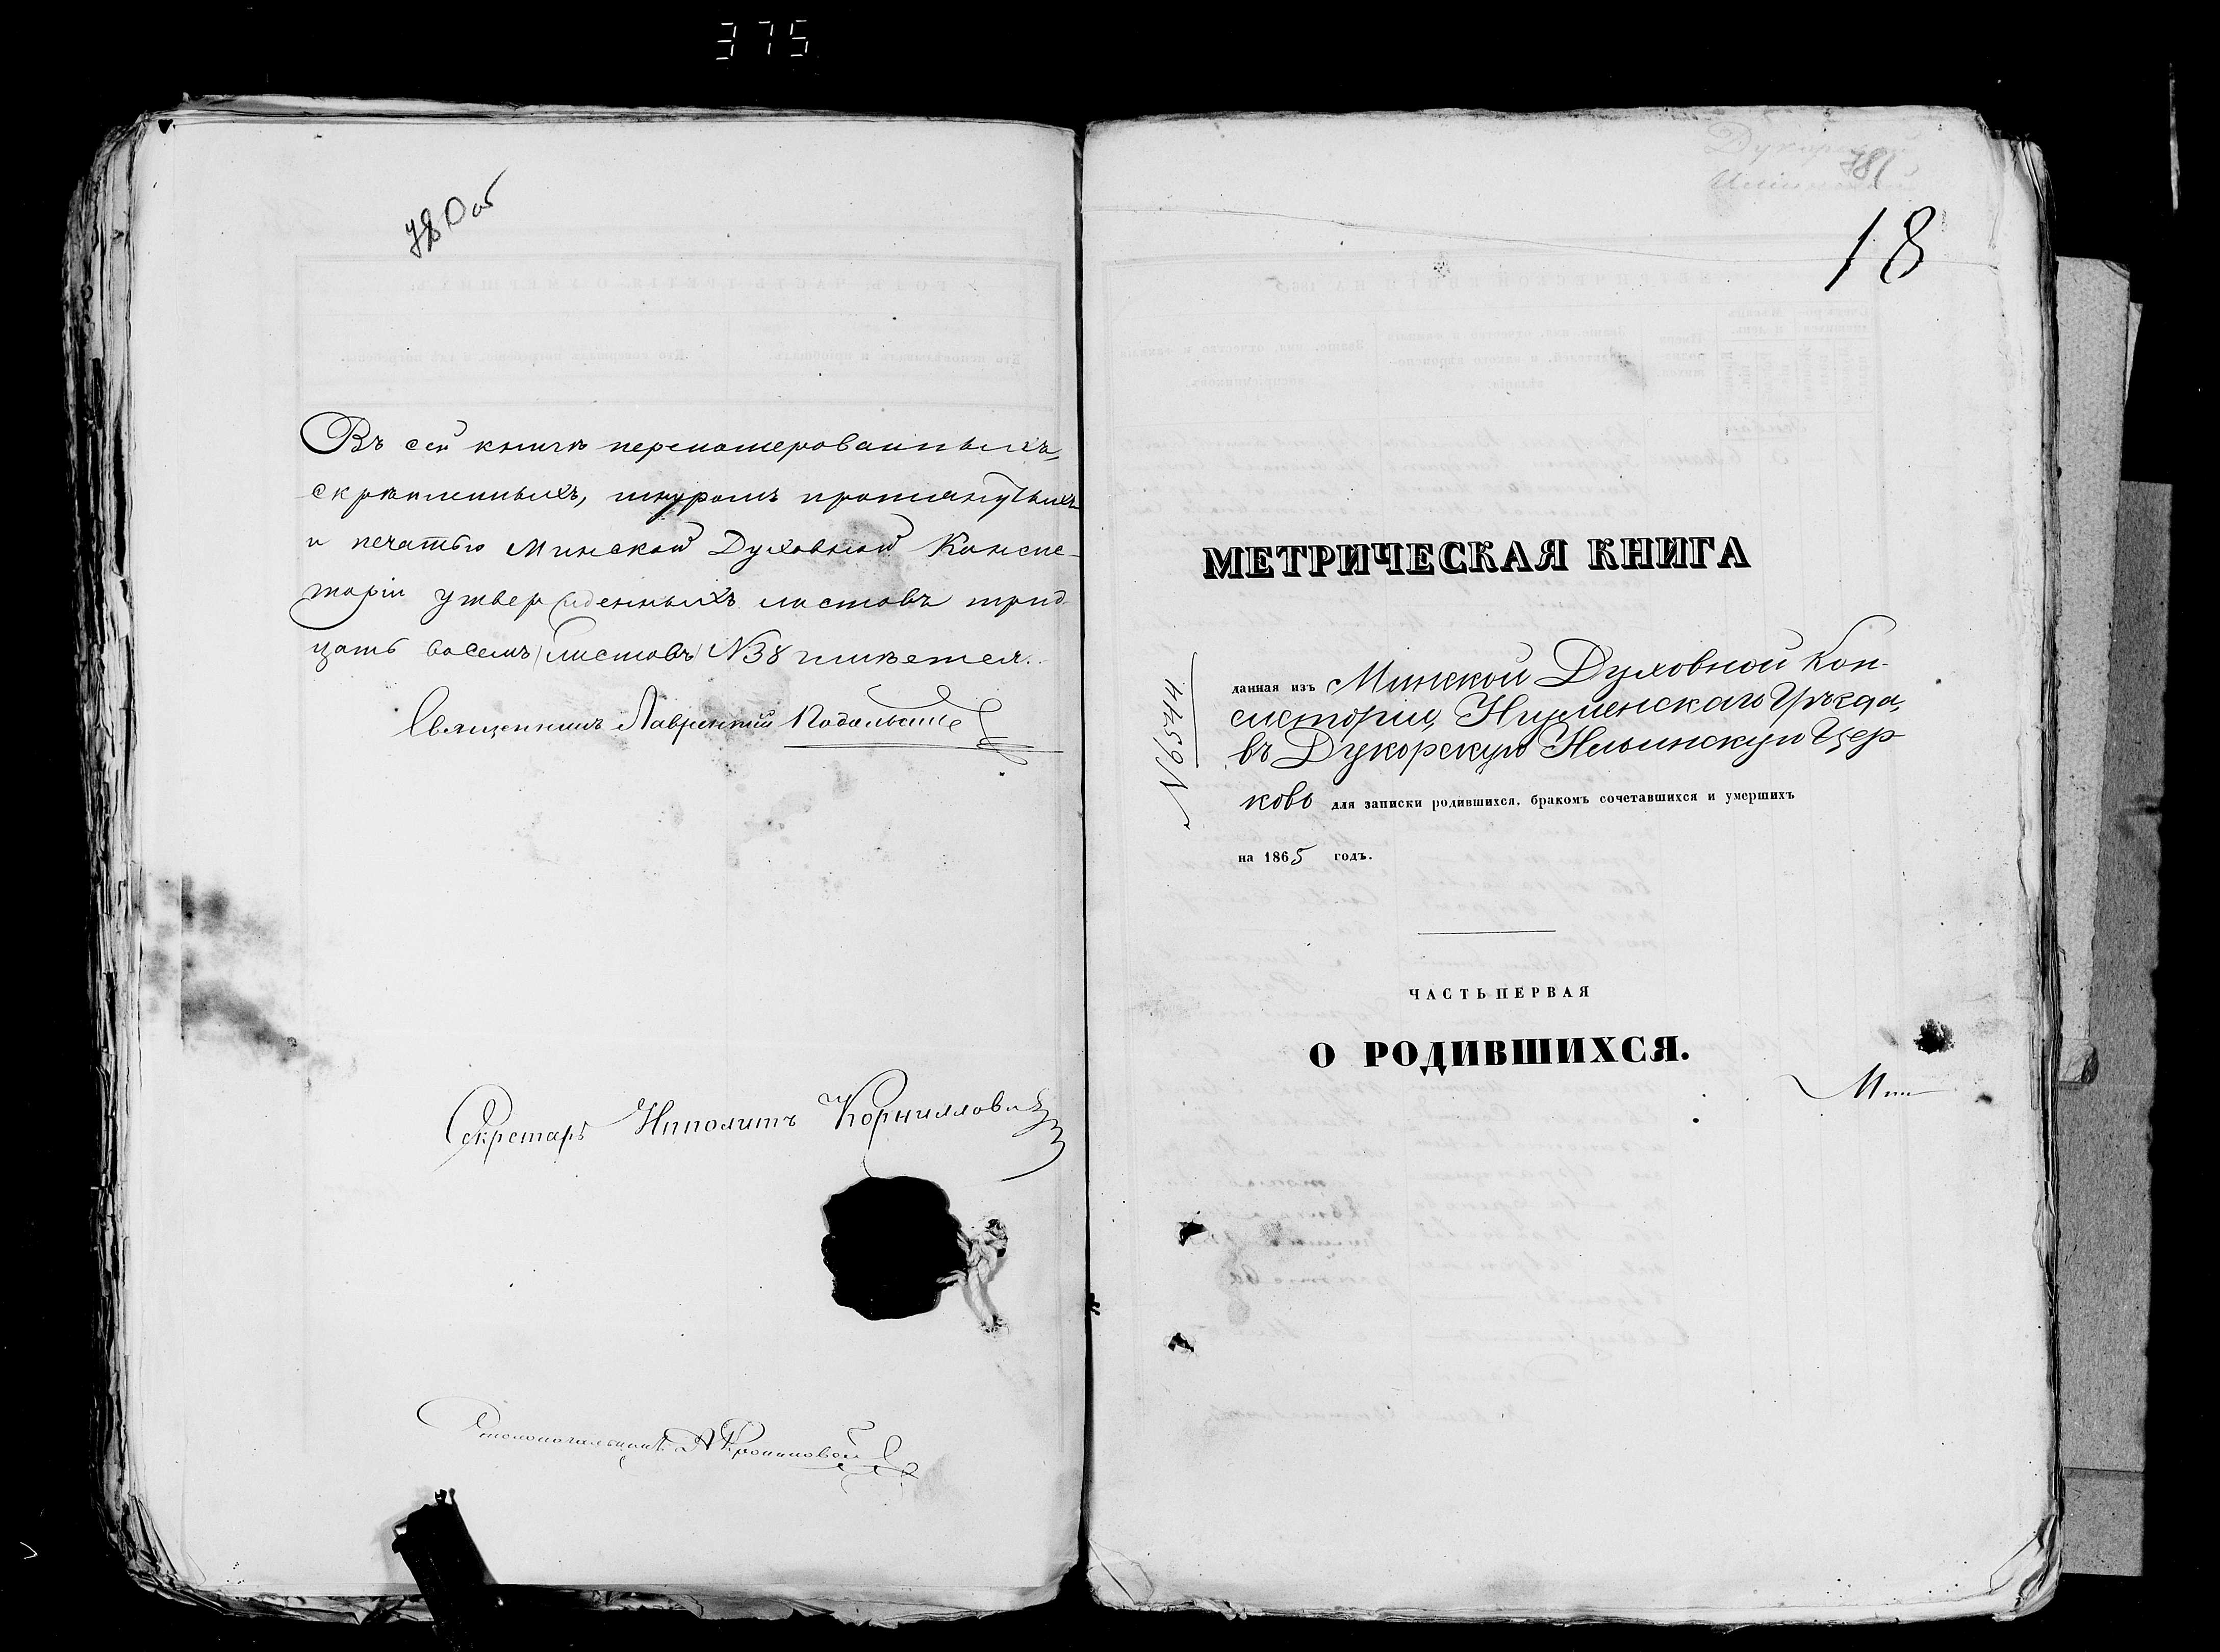 375
780 об
Въ сей книги перенумерованныхъ,
скрѣпленныхъ, шнуромъ протянутыхъ
и печатью Минской Духовной Консис-
торіи утвержденныхъ листовъ трид-
цать восемъ (листовъ) N38 имѣется.
Священникъ Лаврентій Подольскій
Секретарь Ипполитъ Корниллович
Столоначальникъ А
781
18
МЕТРИЧЕСКАЯ КНИГА
данная изъ Минской Духовной Кон-
систоріи, Игуменскаго Уѣзда,
въ Дукорскую Ильинскую Цер
ковь для записки родившихся, бракомъ сочетавшихся и умершихъ
на 1865 годъ.
N 6544
ЧАСТЬ ПЕРВАЯ
О РОДИВШИХСЯ.